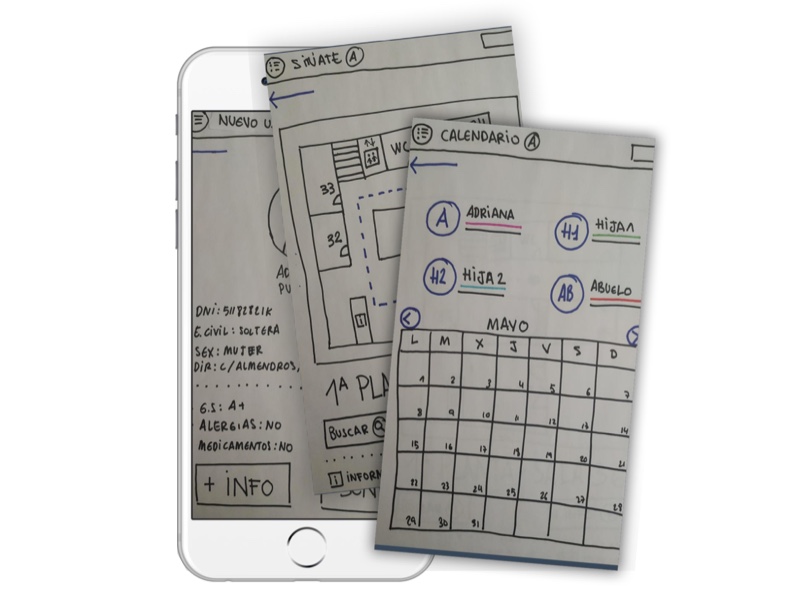 NUEVO U
DNI:
E.CIVIL: SOLTERA
SEX: MUJER
DIR: C/ALMENDROS,
G.S: A+
ALERGIAS: NO
MEDICAMENTOS: NO
+ INFO
A
WC
33
32
i
1ª PLA
BUSCAR
i INFORM
CALENDARIO A
A ADRIANA
H1 HIJA1
H2 HIJA 2
AB ABUELO
< MAYO >
L M X J V S D
1 2 3 4 5 6 7
8 9 10 11 12 13 14
15 16 17 18 19 20 21
22 23 24 25 26 27 28
29 30 31